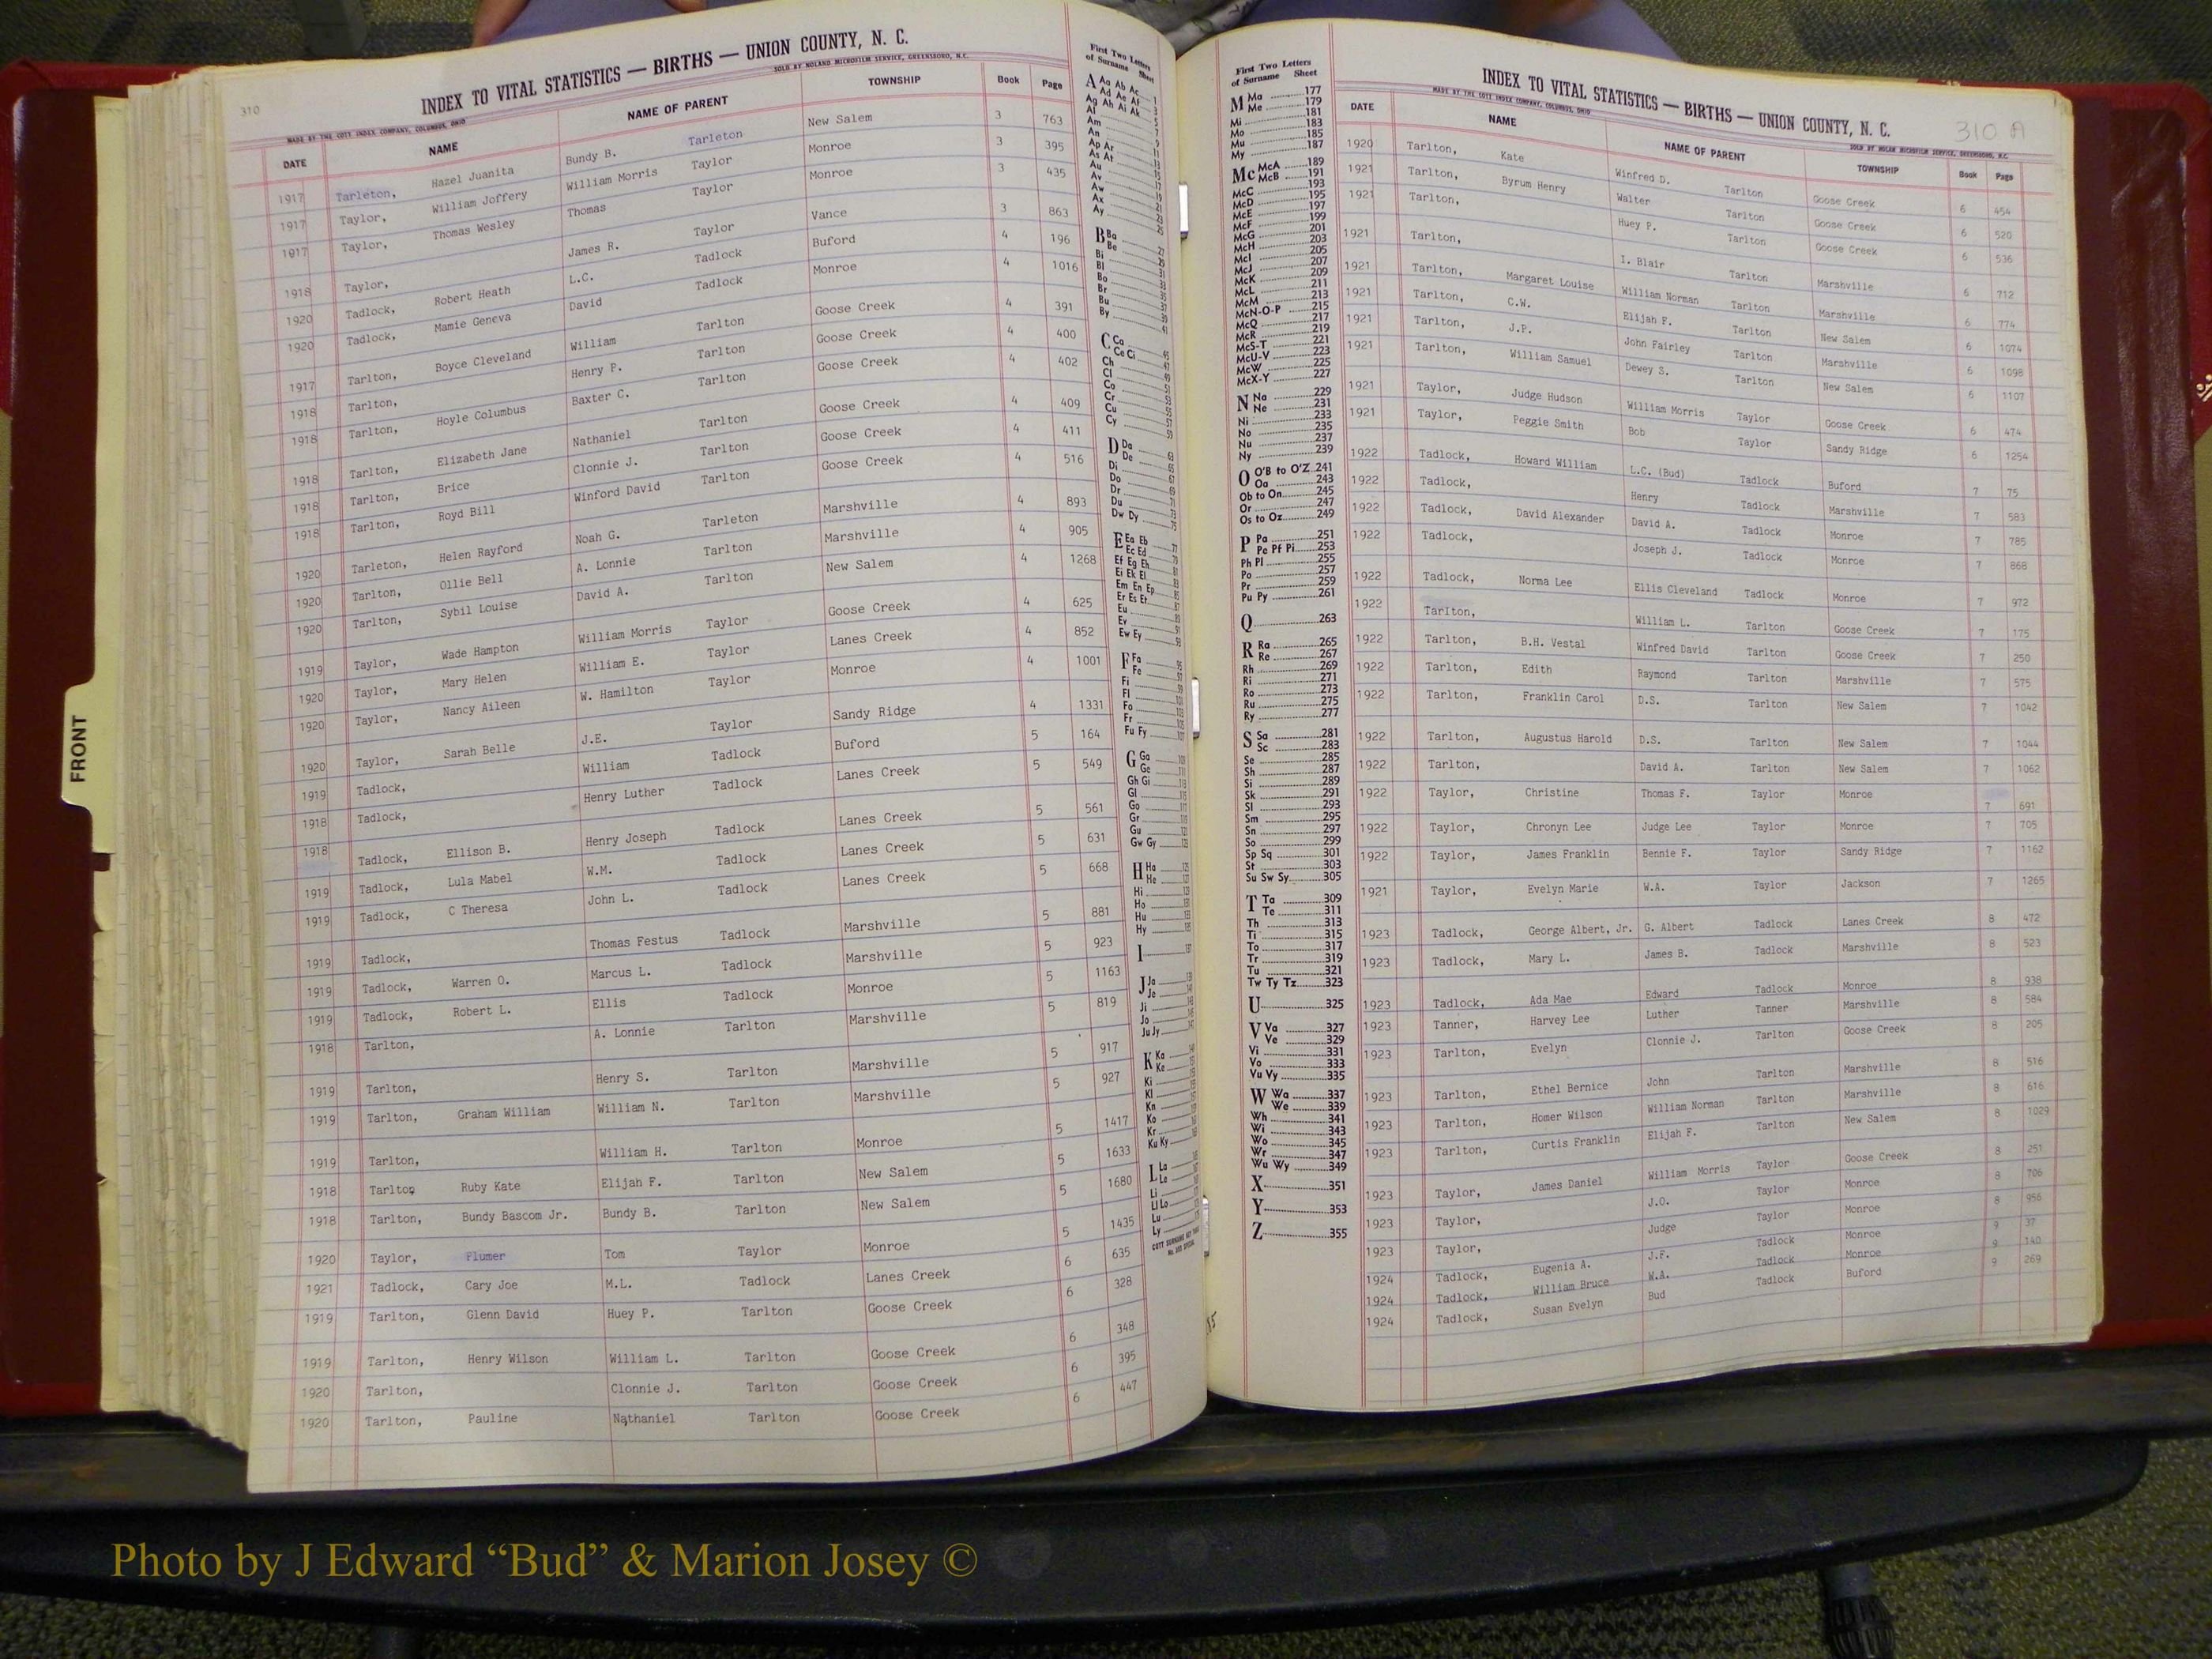 310
INDEX TO VITAL STATISTICS — BIRTHS — UNION COUNTY, N. C.
MADE BY THE COTT INDEX COMPANY, COLUMBUS, OHIO SOLD BY NOLAND MICROFILM SERVICE, GREENSBORO, N.C.
DATE NAME NAME OF PARENT TOWNSHIP Book Page
1917 Tarleton, Hazel Juanita Bundy B. Tarleton New Salem 3 763
1917 Taylor, William Joffery William Morris Taylor Monroe 3 395
1917 Taylor, Thomas Wesley Thomas Taylor Monroe 3 435
1918 Taylor, James R. Taylor Vance 3 863
1920 Tadlock, Robert Heath L.C. Tadlock Buford 4 196
1920 Tadlock, Mamie Geneva David Tadlock Monroe 4 1016
1917 Tarlton, Boyce Cleveland William Tarlton Goose Creek 4 391
1918 Tarlton, Henry P. Tarlton Goose Creek 4 400
1918 Tarlton, Hoyle Columbus Baxter C. Tarlton Goose Creek 4 402
1918 Tarlton, Elizabeth Jane Nathaniel Tarlton Goose Creek 4 409
1918 Tarlton, Brice Clonnie J. Tarlton Goose Creek 4 411
1918 Tarlton, Royd Bill Winford David Tarlton Goose Creek 4 516
1920 Tarleton, Helen Rayford Noah G. Tarleton Marshville 4 893
1920 Tarlton, Ollie Bell A. Lonnie Tarlton Marshville 4 905
1920 Tarlton, Sybil Louise David A. Tarlton New Salem 4 1268
1919 Taylor, Wade Hampton William Morris Taylor Goose Creek 4 625
1920 Taylor, Mary Helen William E. Taylor Lanes Creek 4 852
1920 Taylor, Nancy Aileen W. Hamilton Taylor Monroe 4 1001
1920 Taylor, Sarah Belle J.E. Taylor Sandy Ridge 4 1331
1919 Tadlock, William Tadlock Buford 5 164
1918 Tadlock, Henry Luther Tadlock Lanes Creek 5 549
1918 Tadlock, Ellison B. Henry Joseph Tadlock Lanes Creek 5 561
1919 Tadlock, Lula Mabel W.M. Tadlock Lanes Creek 5 631
1919 Tadlock, C Theresa John L. Tadlock Lanes Creek 5 668
1919 Tadlock, Thomas Festus Tadlock Marshville 5 881
1919 Tadlock, Warren O. Marcus L. Tadlock Marshville 5 923
1919 Tadlock, Robert L. Ellis Tadlock Monroe 5 1163
1918 Tarlton, A. Lonnie Tarlton Marshville 5 819
1919 Tarlton, Henry S. Tarlton Marshville 5 917
1919 Tarlton, Graham William William N. Tarlton Marshville 5 927
1919 Tarlton, William H. Tarlton Monroe 5 1417
1918 Tarlton Ruby Kate Elijah F. Tarlton New Salem 5 1633
1918 Tarlton, Bundy Bascom Jr. Bundy B. Tarlton New Salem 5 1680
1920 Taylor, Plumer Tom Taylor Monroe 5 1435
1921 Tadlock, Cary Joe M.L. Tadlock Lanes Creek 6 635
1919 Tarlton, Glenn David Huey P. Tarlton Goose Creek 6 328
1919 Tarlton, Henry Wilson William L. Tarlton Goose Creek 6 348
1920 Tarlton, Clonnie J. Tarlton Goose Creek 6 395
1920 Tarlton, Pauline Nathaniel Tarlton Goose Creek 6 447
First Two Letters
of Surname Sheet
A Aa Ab Ac
Ad Ae Af
Ag Ah Ai Ak
Al
Am
An
Ap Ar
As At
Au
Av
Aw
Ax
Ay
B Ba
Be
Bi
Bl
Bo
Br
Bu
By
C Ca
Ce Ci
Ch
Cl
Co
Cr
Cu
Cy
D Da
De
Di
Do
Dr
Du
Dw Dy
E Ea Eb
Ec Ed
Ef Eg Eh
Ei Ek El
Em En Ep
Er Es Et
Eu
Ev
Ew Ey
F Fa
Fe
Fi
Fl
Fo
Fr
Fu Fy
G Ga
Ge
Gh Gi
Gl
Go
Gr
Gu
Gw Gy
H Ha
He
Hi
Ho
Hu
Hy
I
J Ja
Je
Ji
Jo
Ju Jy
K Ka
Ke
Ki
Kl
Kn
Ko
Kr
Ku Ky
L La
Le
Li
Ll Lo
Lu
Ly
First Two Letters
of Surname Sheet
M Ma 177
Me 179
Mi 181
Mo 183
Mu 185
My 187
Mc McA 189
McB 191
McC 193
McD 195
McE 197
McF 199
McG 201
McH 203
McI 205
McJ 207
McK 209
McL 211
McM 213
McN-O-P 215
McQ 217
McR 219
McS-T 221
McU-V 223
McW 225
McX-Y 227
N Na 229
Ne 231
Ni 233
No 235
Nu 237
Ny 239
O O'B to O'Z 241
Oa 243
Ob to On 245
Or 247
Os to Oz 249
P Pa 251
Pe Pf Pi 253
Ph Pl 255
Po 257
Pr 259
Pu Py 261
Q 263
R Ra 265
Re 267
Rh 269
Ri 271
Ro 273
Ru 275
Ry 277
S Sa 281
Sc 283
Se 285
Sh 287
Si 289
Sk 291
Sl 293
Sm 295
Sn 297
So 299
Sp Sq 301
St 303
Su Sw Sy 305
T Ta 309
Te 311
Th 313
Ti 315
To 317
Tr 319
Tu 321
Tw Ty Tz 323
U 325
V Va 327
Ve 329
Vi 331
Vo 333
Vu Vy 335
W Wa 337
We 339
Wh 341
Wi 343
Wo 345
Wr 347
Wu Wy 349
X 351
Y 353
Z 355
INDEX TO VITAL STATISTICS — BIRTHS — UNION COUNTY, N. C.
310 A
MADE BY THE COTT INDEX COMPANY, COLUMBUS, OHIO SOLD BY NOLAN MICROFILM SERVICE, GREENSBORO, N.C.
DATE NAME NAME OF PARENT TOWNSHIP Book Page
1920 Tarlton, Kate Winfred D. Tarlton Goose Creek 6 454
1921 Tarlton, Byrum Henry Walter Tarlton Goose Creek 6 520
1921 Tarlton, Huey P. Tarlton Goose Creek 6 536
1921 Tarlton, I. Blair Tarlton Marshville 6 712
1921 Tarlton, Margaret Louise William Norman Tarlton Marshville 6 774
1921 Tarlton, C.W. Elijah F. Tarlton New Salem 6 1074
1921 Tarlton, J.P. John Fairley Tarlton Marshville 6 1098
1921 Tarlton, William Samuel Dewey S. Tarlton New Salem 6 1107
1921 Taylor, Judge Hudson William Morris Taylor Goose Creek 6 474
1921 Taylor, Peggie Smith Bob Taylor Sandy Ridge 6 1254
1922 Tadlock, Howard William L.C. (Bud) Tadlock Buford 7 75
1922 Tadlock, Henry Tadlock Marshville 7 583
1922 Tadlock, David Alexander David A. Tadlock Monroe 7 785
1922 Tadlock, Joseph J. Tadlock Monroe 7 868
1922 Tadlock, Norma Lee Ellis Cleveland Tadlock Monroe 7 972
1922 Tarlton, William L. Tarlton Goose Creek 7 175
1922 Tarlton, B.H. Vestal Winfred David Tarlton Goose Creek 7 250
1922 Tarlton, Edith Raymond Tarlton Marshville 7 575
1922 Tarlton, Franklin Carol D.S. Tarlton New Salem 7 1042
1922 Tarlton, Augustus Harold D.S. Tarlton New Salem 7 1044
1922 Tarlton, David A. Tarlton New Salem 7 1062
1922 Taylor, Christine Thomas F. Taylor Monroe 7 691
1922 Taylor, Chronyn Lee Judge Lee Taylor Monroe 7 705
1922 Taylor, James Franklin Bennie F. Taylor Sandy Ridge 7 1162
1921 Taylor, Evelyn Marie W.A. Taylor Jackson 7 1265
1923 Tadlock, George Albert, Jr. G. Albert Tadlock Lanes Creek 8 472
1923 Tadlock, Mary L. James B. Tadlock Marshville 8 523
1923 Tadlock, Ada Mae Edward Tadlock Monroe 8 938
1923 Tanner, Harvey Lee Luther Tanner Marshville 8 584
1923 Tarlton, Evelyn Clonnie J. Tarlton Goose Creek 8 205
1923 Tarlton, Ethel Bernice John Tarlton Marshville 8 516
1923 Tarlton, Homer Wilson William Norman Tarlton Marshville 8 616
1923 Tarlton, Curtis Franklin Elijah F. Tarlton New Salem 8 1029
1923 Taylor, James Daniel William Morris Taylor Goose Creek 8 251
1923 Taylor, J.O. Taylor Monroe 8 706
1923 Taylor, Judge Taylor Monroe 8 956
1924 Tadlock, Eugenia A. J.F. Tadlock Monroe 9 37
1924 Tadlock, William Bruce W.A. Tadlock Monroe 9 140
1924 Tadlock, Susan Evelyn Bud Tadlock Buford 9 269
FRONT
Photo by J Edward “Bud” & Marion Josey ©